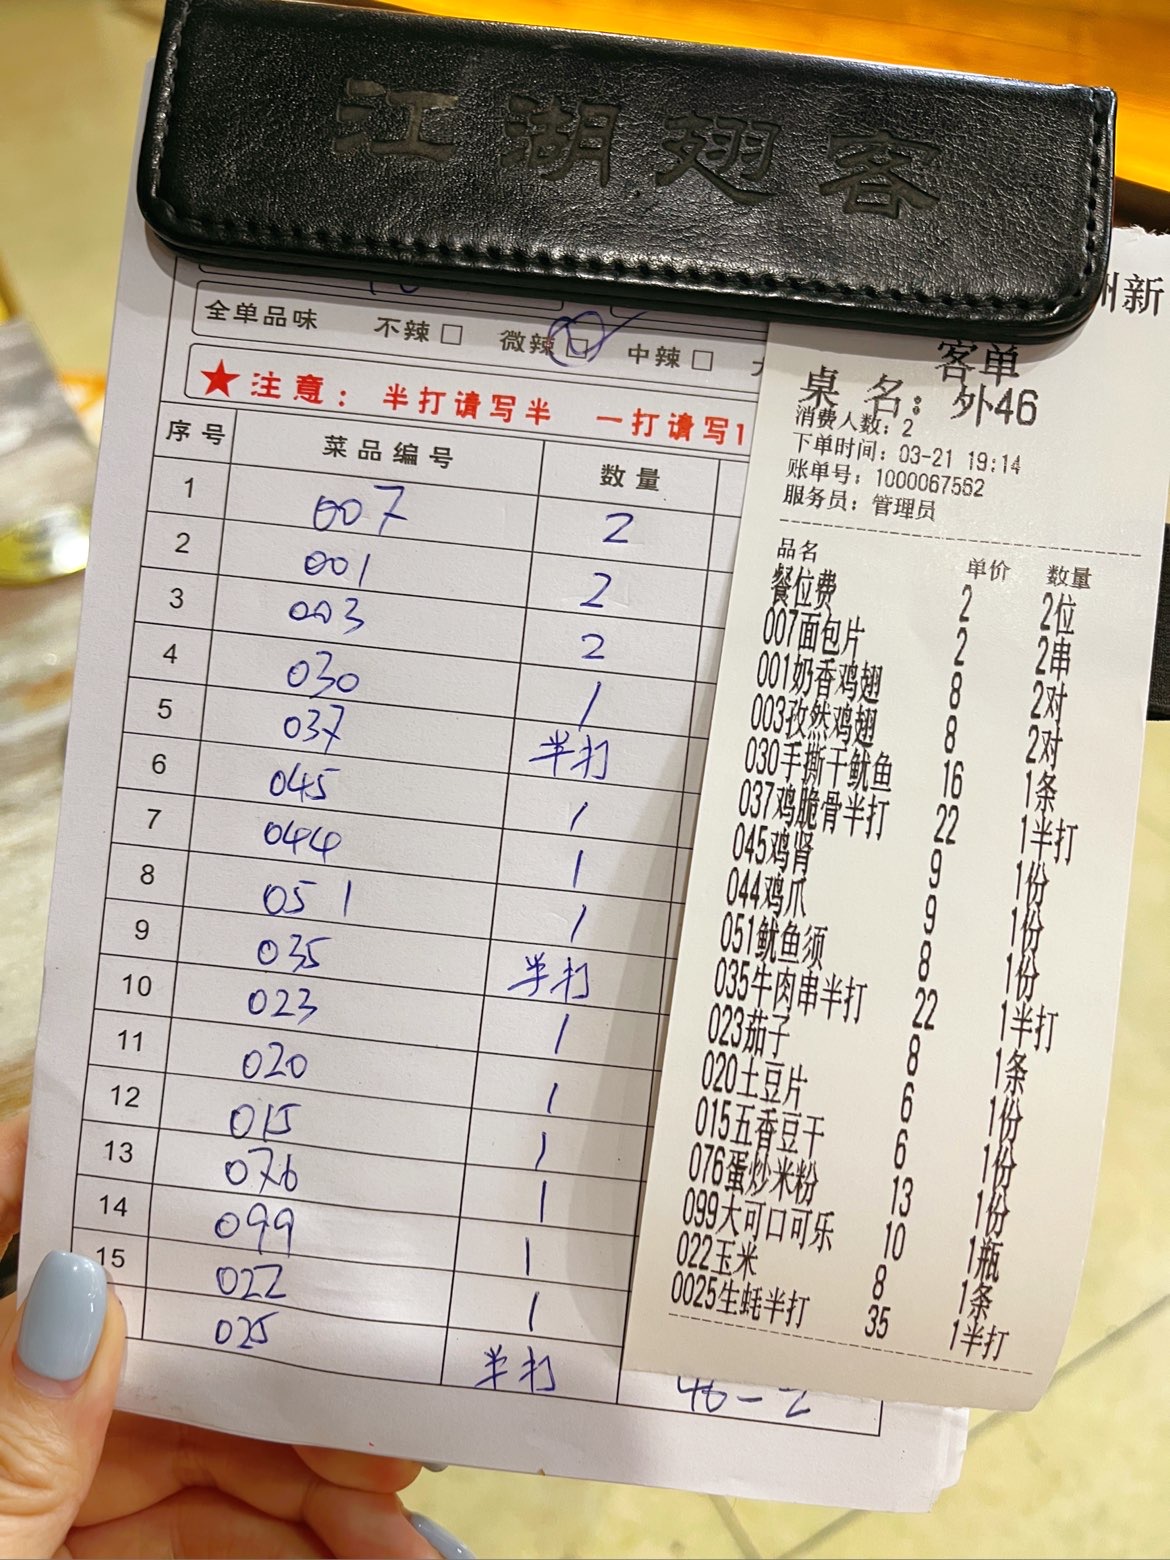 江湖翅客
全单品味 不辣□ 微辣□ 中辣□
★注意： 半打请写半 一打请写1
序号 菜品编号 数量
1 007 2
2 001 2
3 003 2
4 030 1
5 037 半打
6 045 1
7 044 1
8 051 1
9 035 半打
10 023 1
11 020 1
12 015 1
13 076 1
14 099 1
15 022 1
025 半打
46-2
州新
客单
桌名：外46
消费人数：2
下单时间：03-21 19:14
账单号：1000067562
服务员：管理员
品名 单价 数量
餐位费 2 2位
007面包片 2 2串
001奶香鸡翅 8 2对
003孜然鸡翅 8 2对
030手撕干鱿鱼 16 1条
037鸡脆骨半打 22 1半打
045鸡肾 9 1份
044鸡爪 9 1份
051鱿鱼须 8 1份
035牛肉串半打 22 1半打
023茄子 8 1条
020土豆片 6 1份
015五香豆干 6 1份
076蛋炒米粉 13 1份
099大可口可乐 10 1瓶
022玉米 8 1条
0025生蚝半打 35 1半打